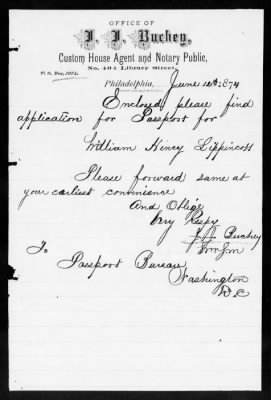 OFFICE OF
J. J. Buchey,
Custom House Agent and Notary Public,
No. 404 Library Street,
P. O. Box, 1072.
Philadelphia, June 12th 1874
Enclosed please find
application for Passport for
William Henry Lippincott
Please forward same at
your earliest convenience
And Oblige
Very Respy
J J Buchey
To
Passport Bureau
Washington
D.C